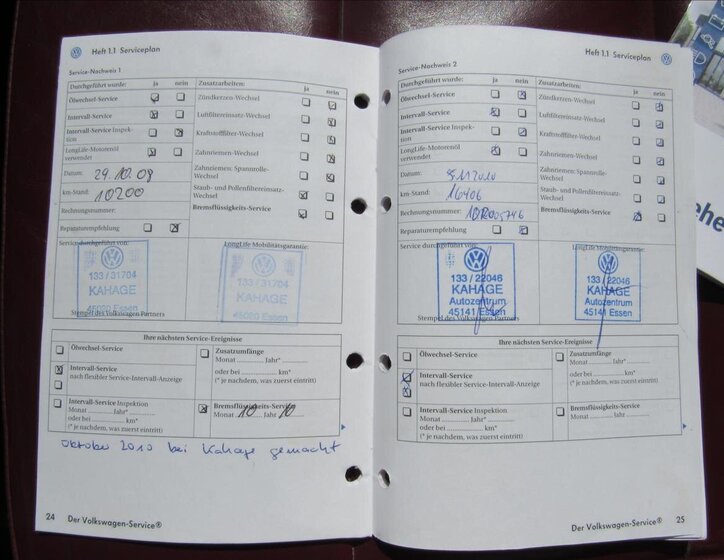 Heft 1.1 Serviceplan
Service-Nachweis 1
Durchgeführt wurde: ja nein Zusatzarbeiten: ja nein
Ölwechsel-Service
Intervall-Service
Intervall-Service Inspek-
tion
LongLife-Motorenöl
verwendet
Datum: 29.10.09
km-Stand: 10200
Rechnungsnummer:
Reparaturempfehlung
Zündkerzen-Wechsel
Luftfiltereinsatz-Wechsel
Kraftstofffilter-Wechsel
Zahnriemen-Wechsel
Zahnriemen: Spannrolle-
Wechsel
Staub- und Pollenfiltereinsatz-
Wechsel
Bremsflüssigkeits-Service
Service durchgeführt von:
LongLife Mobilitätsgarantie:
133 / 31704
KAHAGE
45020 Essen
133 / 31704
KAHAGE
45020 Essen
Stempel des Volkswagen Partners
Ihre nächsten Service-Ereignisse
Ölwechsel-Service
Intervall-Service
nach flexibler Service-Intervall-Anzeige
Intervall-Service Inspektion
Monat .......... Jahr*
oder bei .......... km*
(* je nachdem, was zuerst eintritt)
Zusatzumfänge
Monat .......... Jahr* ..........
oder bei .......... km*
(* je nachdem, was zuerst eintritt)
Bremsflüssigkeits-Service
Monat 10 Jahr 10
Oktober 2010 bei Kahage gemacht
24 Der Volkswagen-Service®
Heft 1.1 Serviceplan
Service-Nachweis 2
Durchgeführt wurde: ja nein Zusatzarbeiten: ja nein
Ölwechsel-Service
Intervall-Service
Intervall-Service Inspek-
tion
LongLife-Motorenöl
verwendet
Datum:
km-Stand: 16406
Rechnungsnummer:
Reparaturempfehlung
Zündkerzen-Wechsel
Luftfiltereinsatz-Wechsel
Kraftstofffilter-Wechsel
Zahnriemen-Wechsel
Zahnriemen: Spannrolle-
Wechsel
Staub- und Pollenfiltereinsatz-
Wechsel
Bremsflüssigkeits-Service
Service durchgeführt von:
LongLife Mobilitätsgarantie:
133 / 22046
KAHAGE
Autozentrum
45141 Essen
133 / 22046
KAHAGE
Autozentrum
45141 Essen
Stempel des Volkswagen Partners
Ihre nächsten Service-Ereignisse
Ölwechsel-Service
Intervall-Service
nach flexibler Service-Intervall-Anzeige
Intervall-Service Inspektion
Monat .......... Jahr*
oder bei .......... km*
(* je nachdem, was zuerst eintritt)
Zusatzumfänge
Monat .......... Jahr* ..........
oder bei .......... km*
(* je nachdem, was zuerst eintritt)
Bremsflüssigkeits-Service
Monat .......... Jahr ..........
Der Volkswagen-Service® 25
ehe